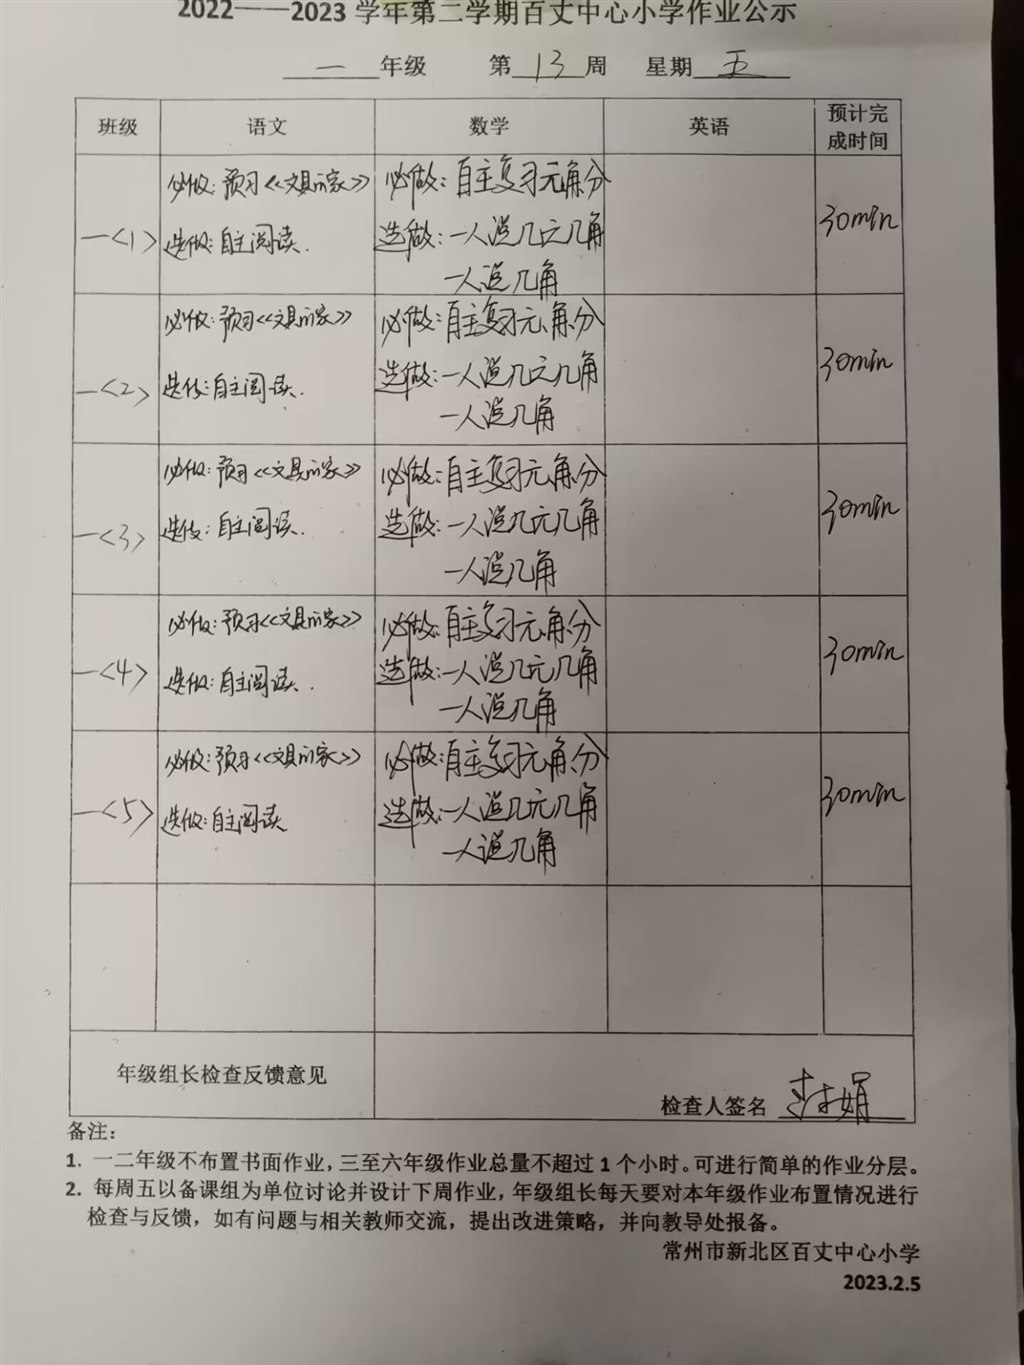 2022——2023 学年第二学期百丈中心小学作业公示
一年级 第13周 星期五
班级 语文 数学 英语 预计完成时间
一<1> 必做：预习《文具的家》 必做：自主复习元角分 30min
选做：自主阅读. 选做：一人说几元几角
一人说几角
一<2> 必做：预习《文具的家》 必做：自主复习元、角、分 30min
选做：自主阅读. 选做：一人说几元几角
一人说几角
一<3> 必做：预习《文具的家》 必做：自主复习元、角、分 30min
选做：自主阅读. 选做：一人说几元几角
一人说几角
一<4> 必做：预习《文具的家》 必做：自主复习元、角、分 30min
选做：自主阅读. 选做：一人说几元几角
一人说几角
一<5> 必做：预习《文具的家》 必做：自主复习元、角、分 30min
选做：自主阅读 选做：一人说几元几角
一人说几角
年级组长检查反馈意见
检查人签名
备注：
1. 一二年级不布置书面作业，三至六年级作业总量不超过 1 个小时。可进行简单的作业分层。
2. 每周五以备课组为单位讨论并设计下周作业，年级组长每天要对本年级作业布置情况进行
检查与反馈，如有问题与相关教师交流，提出改进策略，并向教导处报备。
常州市新北区百丈中心小学
2023.2.5